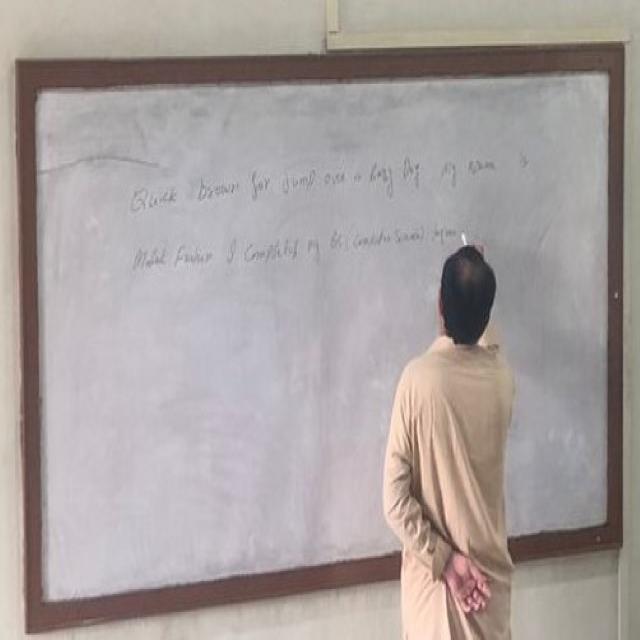 Quick brown fox jump over a lazy Dog my name is
I Completed my BS (Computer Science) degree